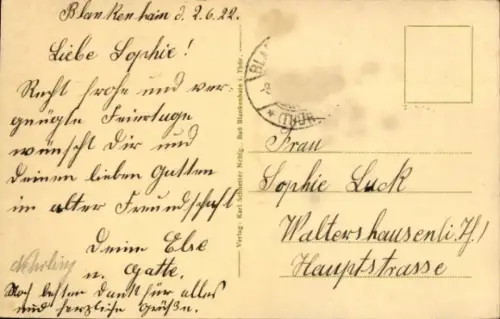 Blankenhain d. 2.6.22.
Liebe Sophie!
Recht frohe und ver-
gnügte Feiertage
wünscht Dir und
Deinen lieben Gatten
in alter Freundschaft
Deine Else
u. Gatte.
Noch besten Dank für alles
und herzliche Grüße.
Verlag: Karl Schlotter Nchflg., Bad Blankenhain i. Thür.
BLAN
(THÜR)
Frau
Sophie Luck
Waltershausen i. Th/
Hauptstrasse